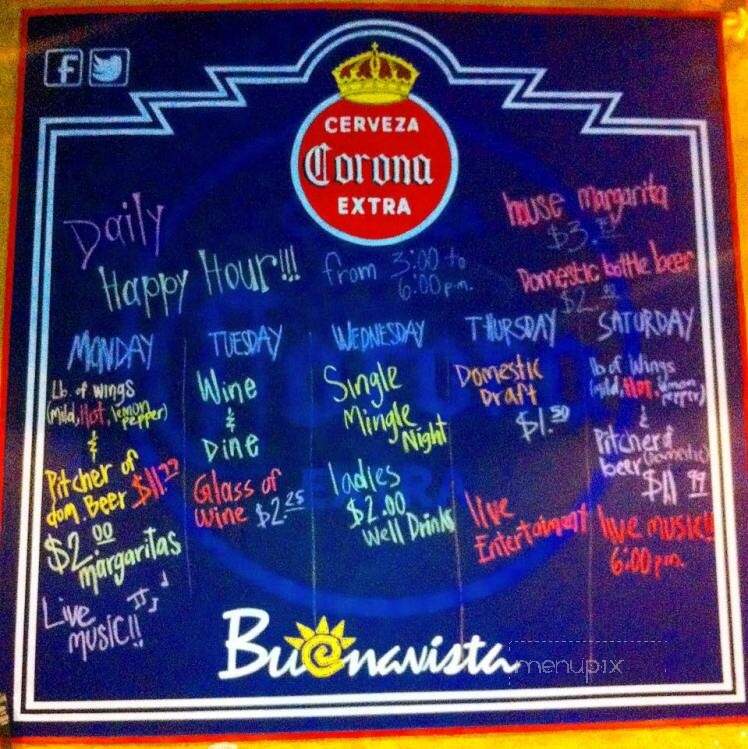 f
CERVEZA
Corona
EXTRA
Daily
Happy Hour!!!
from 3:00 to
6:00 p.m.
house margarita
Domestic bottle beer
MONDAY
Lb. of wings
(mild, Hot, lemon
pepper)
&
Pitcher of
dom. Beer
$2.00
margaritas
Live
music!!
TUESDAY
Wine
&
Dine
Glass of
wine $2.25
WEDNESDAY
Single
Mingle
Night
ladies
$2.00
Well Drinks
THURSDAY
Domestic
Draft
$1.50
live
Entertaiment
SATURDAY
lb of Wings
(mild, Hot, lemon
pepper)
&
Pitcher of
beer (domestic)
$11.99
live music!!
6:00 pm.
Buenavista
menupix